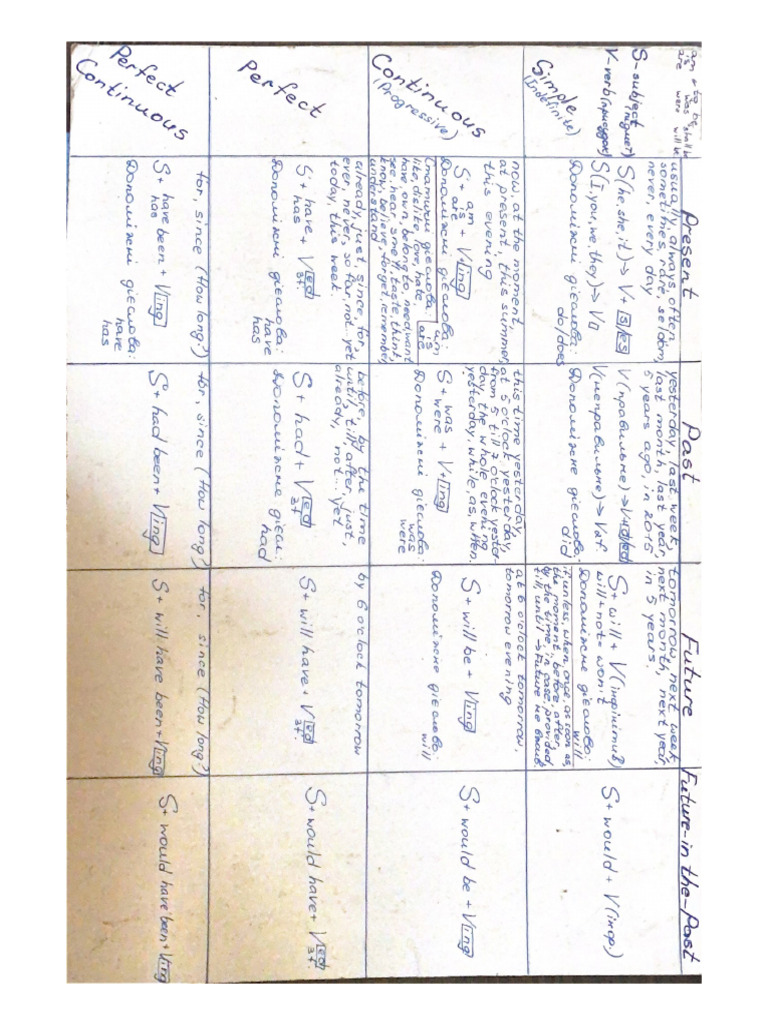 am to be
is was shall b
are were will b
S-subject
(підмет)
V-verb (присудок)
Present
Past
Future
Future-in-the-Past
Simple
(Indefinite)
usually, always, often,
sometimes, rare, seldom,
never, every day
S(he, she, it)→ V+ s/es
S(I, you, we, they)→ V
Допоміжні дієслова:
do/does
yesterday, last week,
last month, last year,
5 years ago, in 2015
V(правильне)→V+d/ed
V(неправильне)→V2f.
Допоміжне дієслово:
did
tomorrow, next week,
next month, next year,
in 5 years.
S+will + V(інфінітив)
will+not=won't
Допоміжне дієслово:
will
if, unless, when, once, as soon as,
the moment, before, after,
by the time, in case, provided,
till, until → Future не вжив.
S+would + V(інф.)
Continuous
(Progressive)
now, at the moment,
at present, this summer,
this evening
S+ am
is + Ving
are
Допоміжні дієслова: am
is
are
like, dislike, love, hate,
have, own, belong to, need, want
see, hear, smell, taste, think,
know, believe, forget, remember,
understand
this time yesterday,
at 5 o'clock yesterday,
from 5 till 7 o'clock yester-
day, the whole evening
yesterday, while, as, when.
S+ was
were + V+ing
Допоміжні дієслова:
was
were
at 6 o'clock tomorrow,
tomorrow evening
S+will be + Ving
Допоміжне дієслово:
will
S+would be + Ving
Perfect
already, just, since, for,
ever, never, so far, not...yet
today, this week.
S+ have + Ved
has 3f.
Допоміжні дієслова:
have
has
before, by the time
until, till, after, just,
already, not...yet
S+ had + Ved
3f
Допоміжне дієсл:
had
by 6 o'clock tomorrow
S+will have+ Ved
3f.
S+would have+ Ved
3f.
Perfect
Continuous
for, since (How long?)
S+ have been + Ving
has
Допоміжні дієслова:
have
has
for, since (How long?)
S+ had been+ Ving
for, since (How long?)
S+ will have been+Ving
S+ would have been+ Ving